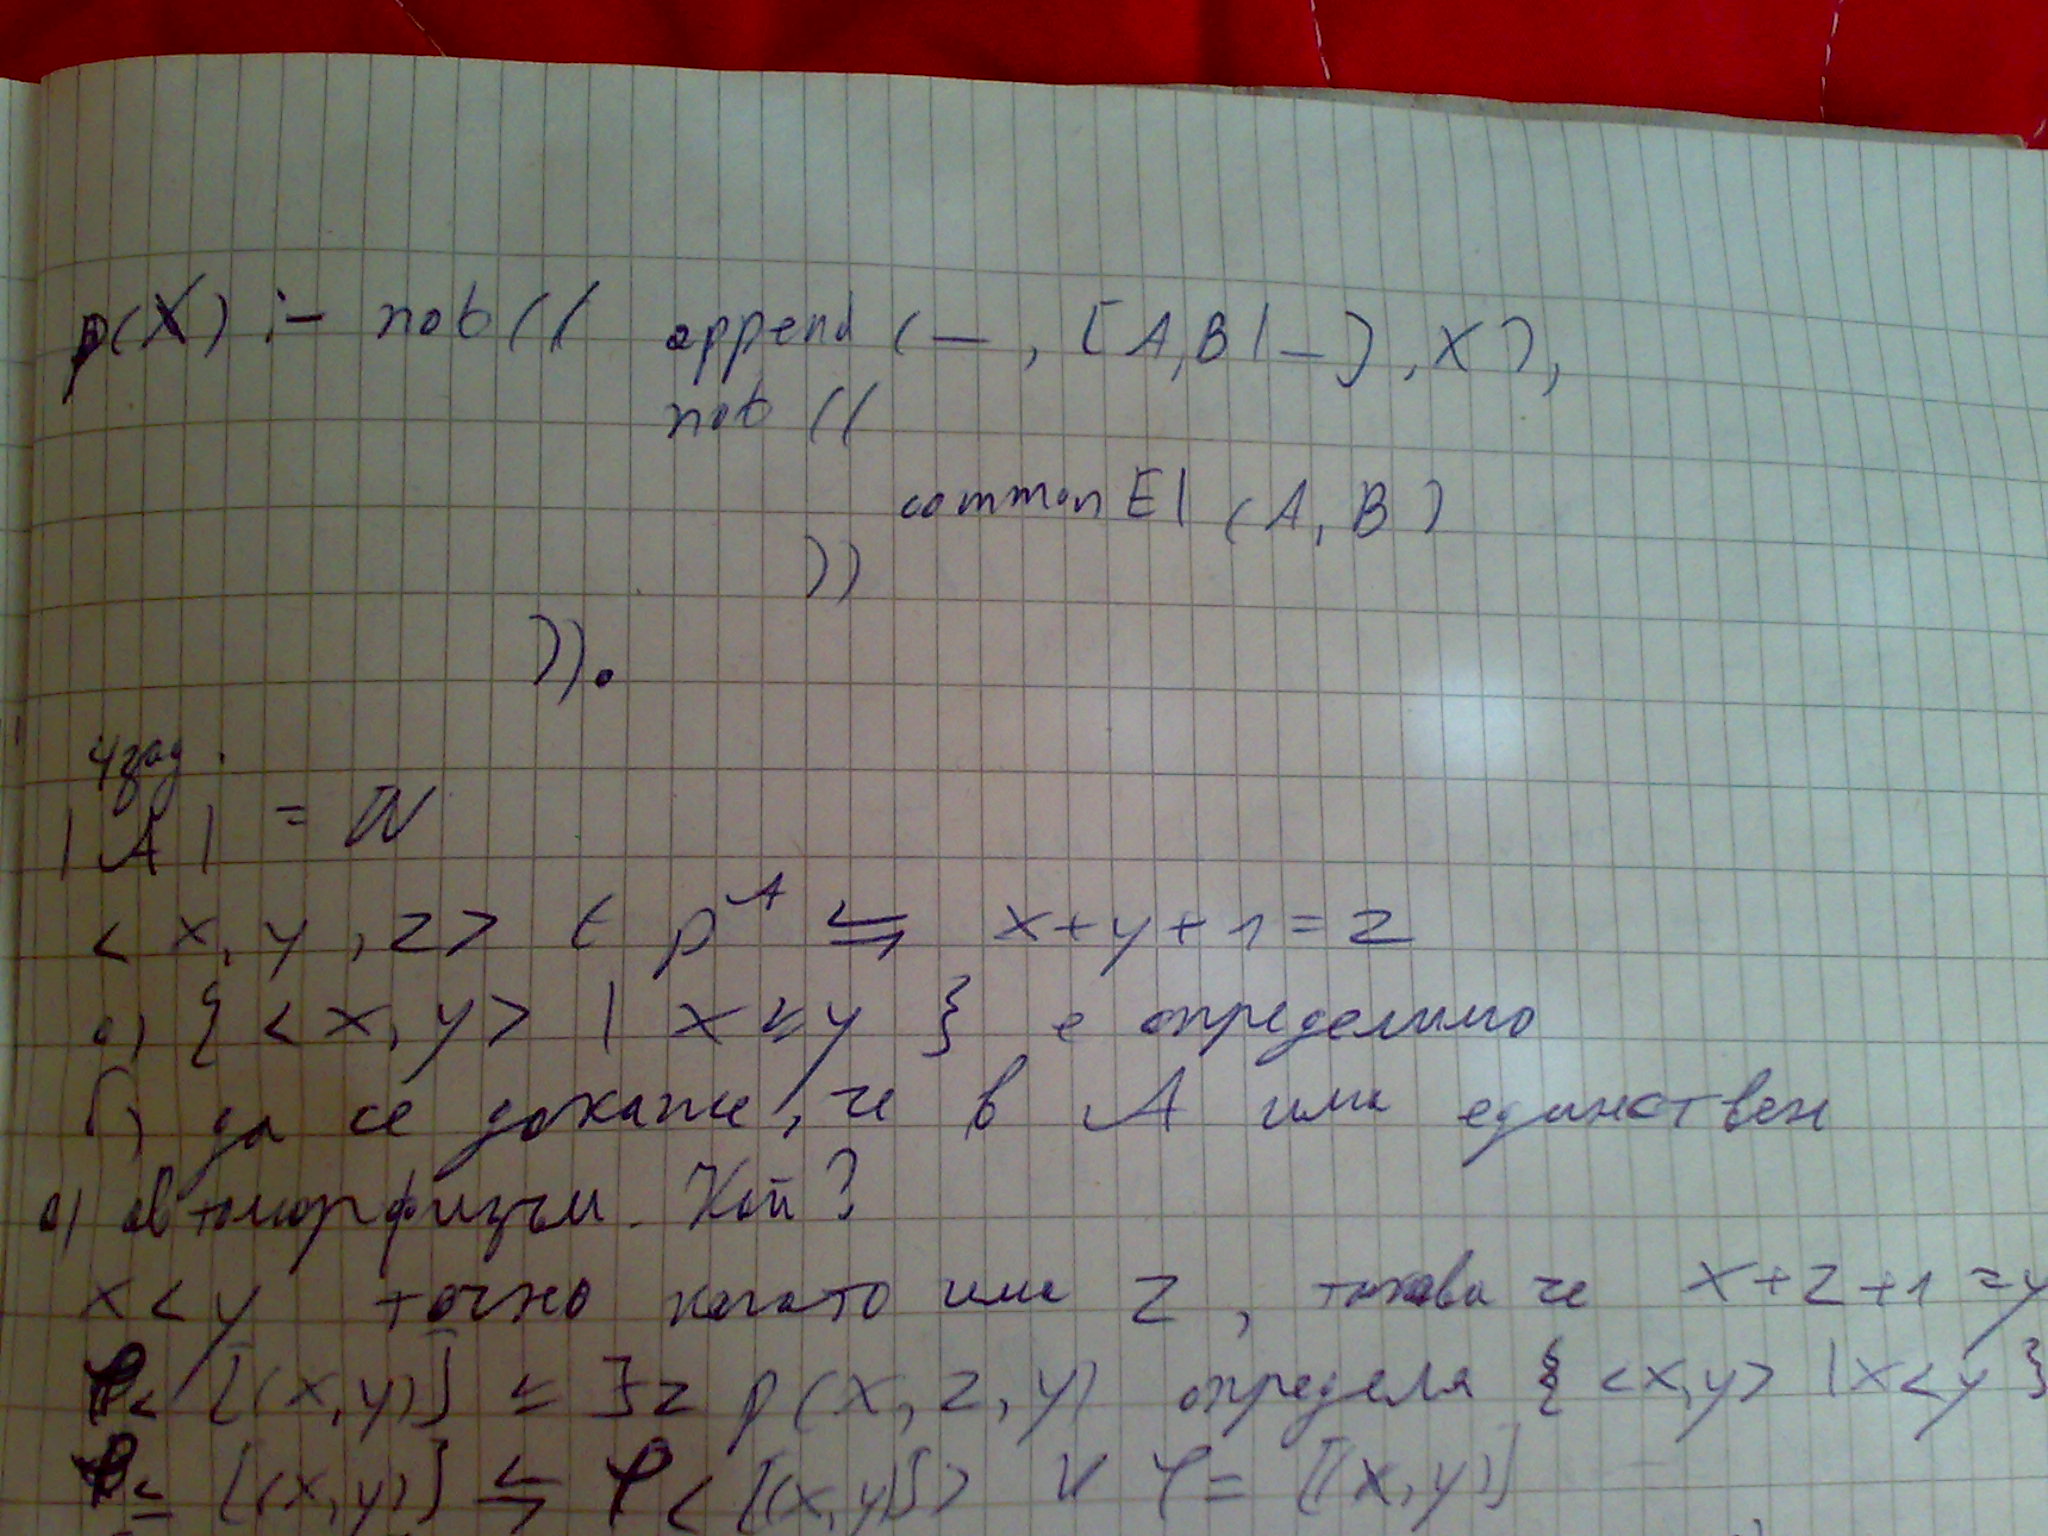 p(X) :- not(( append(_, [A,B|_], X),
not((
commonEl(A, B)
))
)).
4зад.
|A| = ℕ
<x, y, z> ∈ p^A ⇆ x+y+1=z
а) {<x, y> | x ≤ y } е определимо
б) да се докаже, че в A има единствен
а) автоморфизъм. Кой?
x<y точно когато има z, такова че x+z+1=y
φ< [(x,y)] ⇆ ∃z p(x, z, y) определя {<x,y> | x<y}
φ≤ [(x,y)] ⇆ φ< [(x,y)] ∨ φ= [(x,y)]